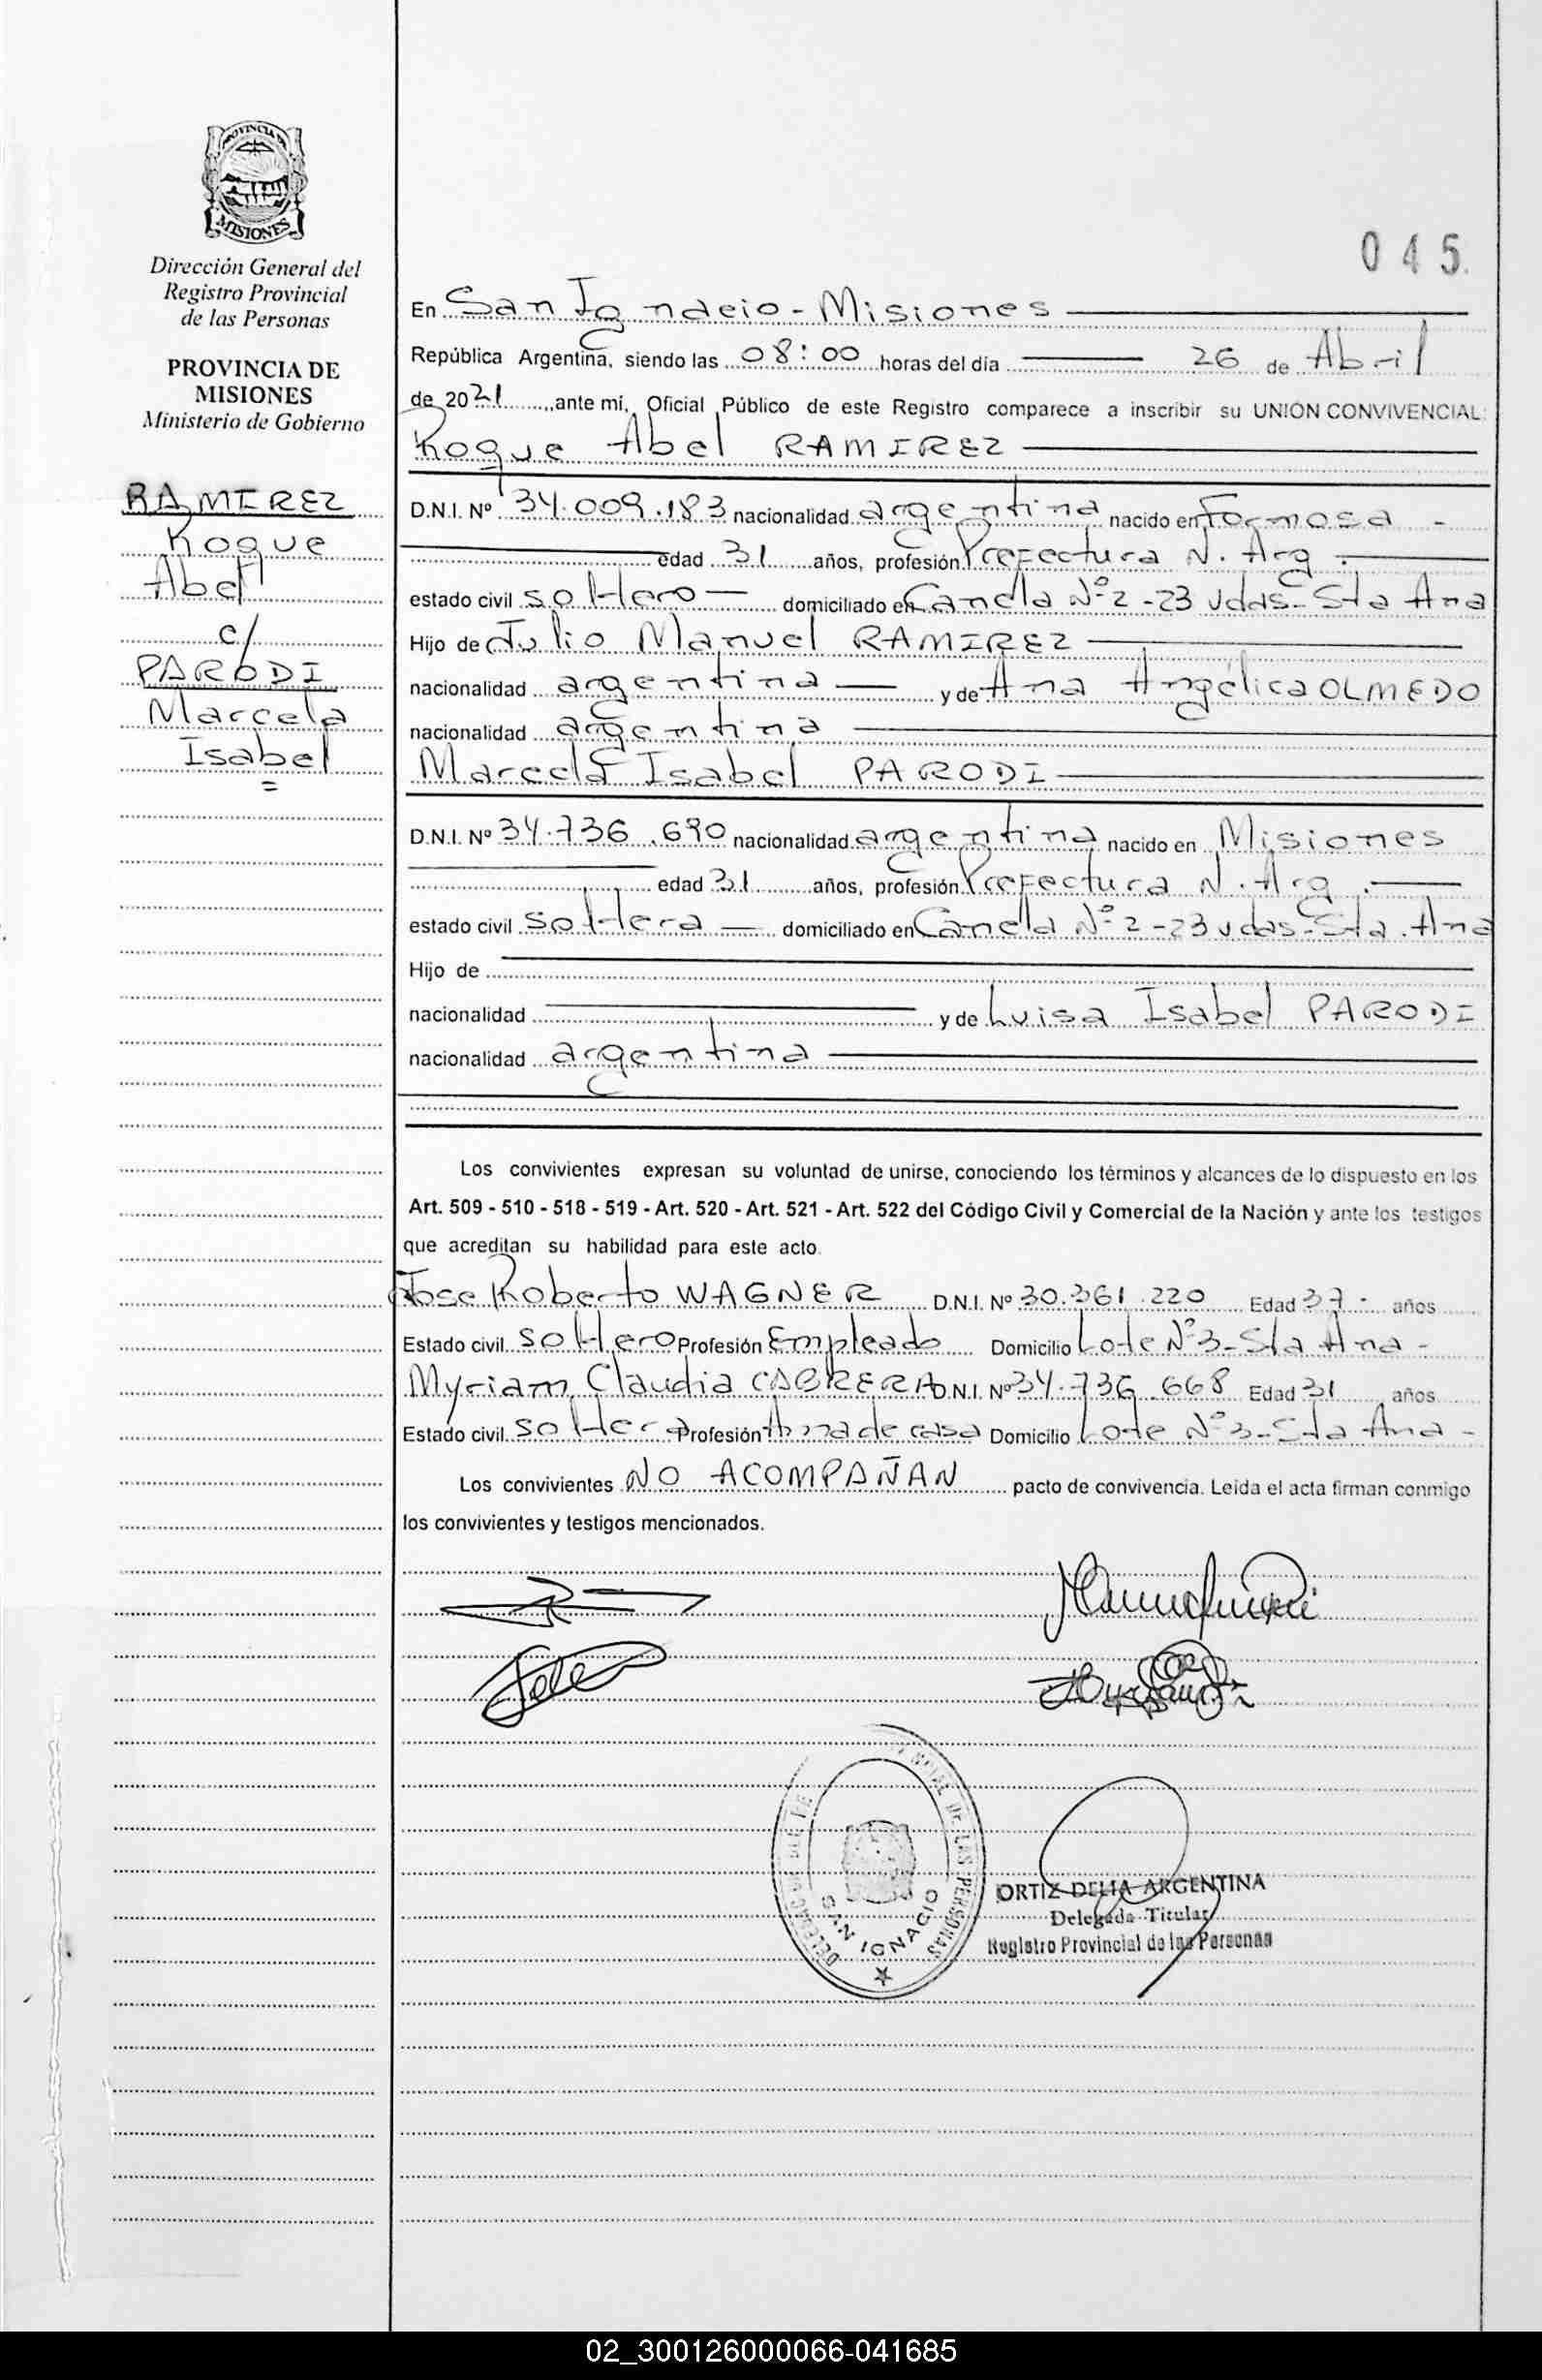 PROVINCIA DE
MISIONES
Dirección General del
Registro Provincial
de las Personas
PROVINCIA DE
MISIONES
Ministerio de Gobierno
RAMIREZ
Roque
Abel
c/
PARODI
Marcela
Isabel
=
045.
En San Ignacio - Misiones
República Argentina, siendo las 08:00 horas del día 26 de Abril
de 2021, ante mí, Oficial Público de este Registro comparece a inscribir su UNION CONVIVENCIAL:
Roque Abel RAMIREZ
D.N.I. Nº 34.009.183 nacionalidad argentina nacido en Formosa -
edad 31 años, profesión Prefectura N. Arg.
estado civil soltero domiciliado en Candela Nº 2 - 23 vdas - Sta Ana
Hijo de Julio Manuel RAMIREZ
nacionalidad argentina y de Ana Angélica OLMEDO
nacionalidad argentina
Marcela Isabel PARODI
D.N.I. Nº 34.736.690 nacionalidad argentina nacido en Misiones
edad 31 años, profesión Prefectura N. Arg.
estado civil soltera domiciliado en Candela Nº 2 - 23 vdas - Sta. Ana
Hijo de
nacionalidad y de Luisa Isabel PARODI
nacionalidad argentina
Los convivientes expresan su voluntad de unirse, conociendo los términos y alcances de lo dispuesto en los
Art. 509 - 510 - 518 - 519 - Art. 520 - Art. 521 - Art. 522 del Código Civil y Comercial de la Nación y ante los testigos
que acreditan su habilidad para este acto.
Jose Roberto WAGNER D.N.I. Nº 30.361.220 Edad 37 - años
Estado civil soltero Profesión Empleado Domicilio Lote Nº 3 - Sta Ana -
Myriam Claudia CABRERA D.N.I. Nº 34.736.668 Edad 31 años
Estado civil soltera Profesión Ama de casa Domicilio Lote Nº 3 - Sta Ana -
Los convivientes NO ACOMPAÑAN pacto de convivencia. Leida el acta firman conmigo
los convivientes y testigos mencionados.
SAN IGNACIO
ORTIZ DELIA ARGENTINA
Delegada Titular
Registro Provincial de las Personas
02_300126000066-041685